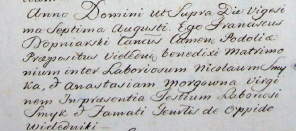 Anno Domini ut Supra Die Vigesi
ma Septima Augusti. Ego Franciscus
Dopniarski Cancus Camen; Podolia
Præpositus Vieledne, benedixi Matrimo
nium inter Laboriosum Nicolaum Smy
ka, et Anastasiam Morgowna Virgi
nem In præsentia Testium Laboriosi
Smyk et Jamati de Oppido
Wieledniki